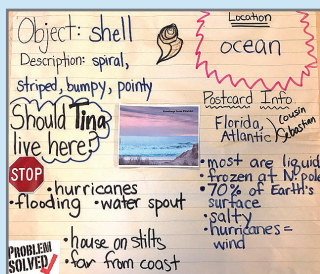 Object: shell
Description: spiral,
striped, bumpy, pointy
Location
ocean
Should Tina
live here?
Postcard Info
Florida,
Atlantic
cousin
Sebastian
STOP
• hurricanes
• flooding • water spout
• most are liquid
• frozen at N. pole
• 70% of Earth's
surface
• salty
• hurricanes =
wind
PROBLEM
SOLVED
• house on stilts
• far from coast